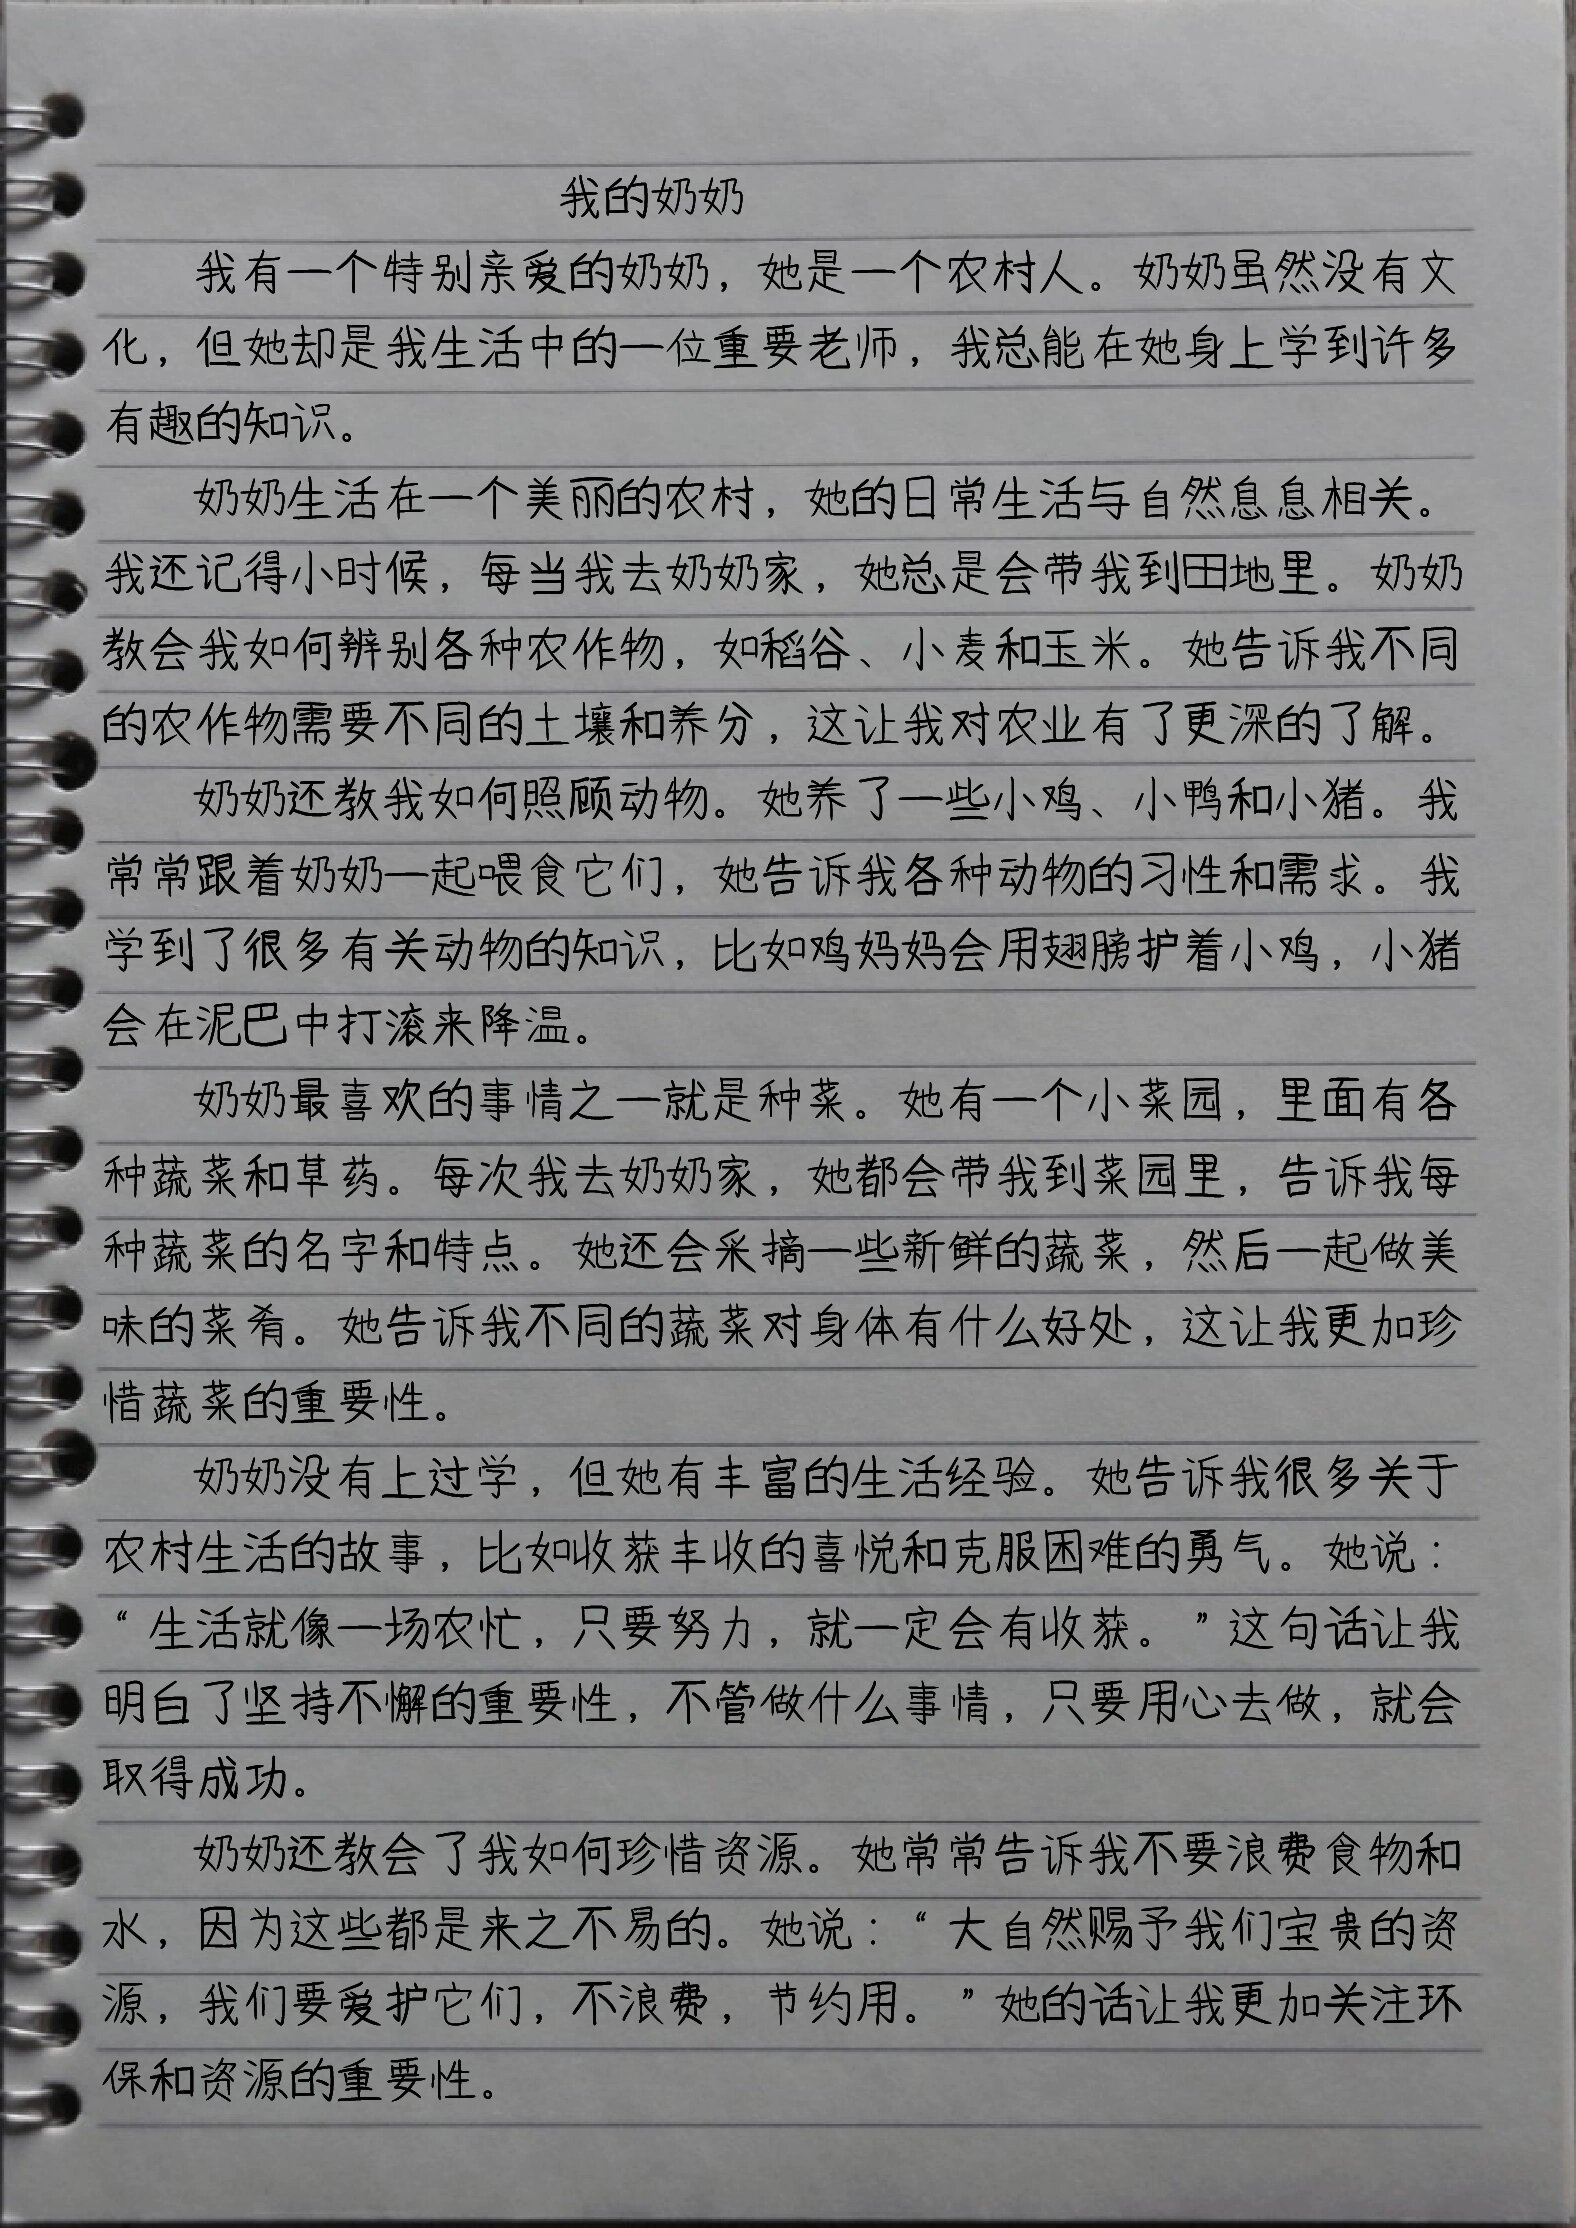 我的奶奶
我有一个特别亲爱的奶奶，她是一个农村人。奶奶虽然没有文
化，但她却是我生活中的一位重要老师，我总能在她身上学到许多
有趣的知识。
奶奶生活在一个美丽的农村，她的日常生活与自然息息相关。
我还记得小时候，每当我去奶奶家，她总是会带我到田地里。奶奶
教会我如何辨别各种农作物，如稻谷、小麦和玉米。她告诉我不同
的农作物需要不同的土壤和养分，这让我对农业有了更深的了解。
奶奶还教我如何照顾动物。她养了一些小鸡、小鸭和小猪。我
常常跟着奶奶一起喂食它们，她告诉我各种动物的习性和需求。我
学到了很多有关动物的知识，比如鸡妈妈会用翅膀护着小鸡，小猪
会在泥巴中打滚来降温。
奶奶最喜欢的事情之一就是种菜。她有一个小菜园，里面有各
种蔬菜和草药。每次我去奶奶家，她都会带我到菜园里，告诉我每
种蔬菜的名字和特点。她还会采摘一些新鲜的蔬菜，然后一起做美
味的菜肴。她告诉我不同的蔬菜对身体有什么好处，这让我更加珍
惜蔬菜的重要性。
奶奶没有上过学，但她有丰富的生活经验。她告诉我很多关于
农村生活的故事，比如收获丰收的喜悦和克服困难的勇气。她说：
“生活就像一场农忙，只要努力，就一定会有收获。”这句话让我
明白了坚持不懈的重要性，不管做什么事情，只要用心去做，就会
取得成功。
奶奶还教会了我如何珍惜资源。她常常告诉我不要浪费食物和
水，因为这些都是来之不易的。她说：“大自然赐予我们宝贵的资
源，我们要爱护它们，不浪费，节约用。”她的话让我更加关注环
保和资源的重要性。